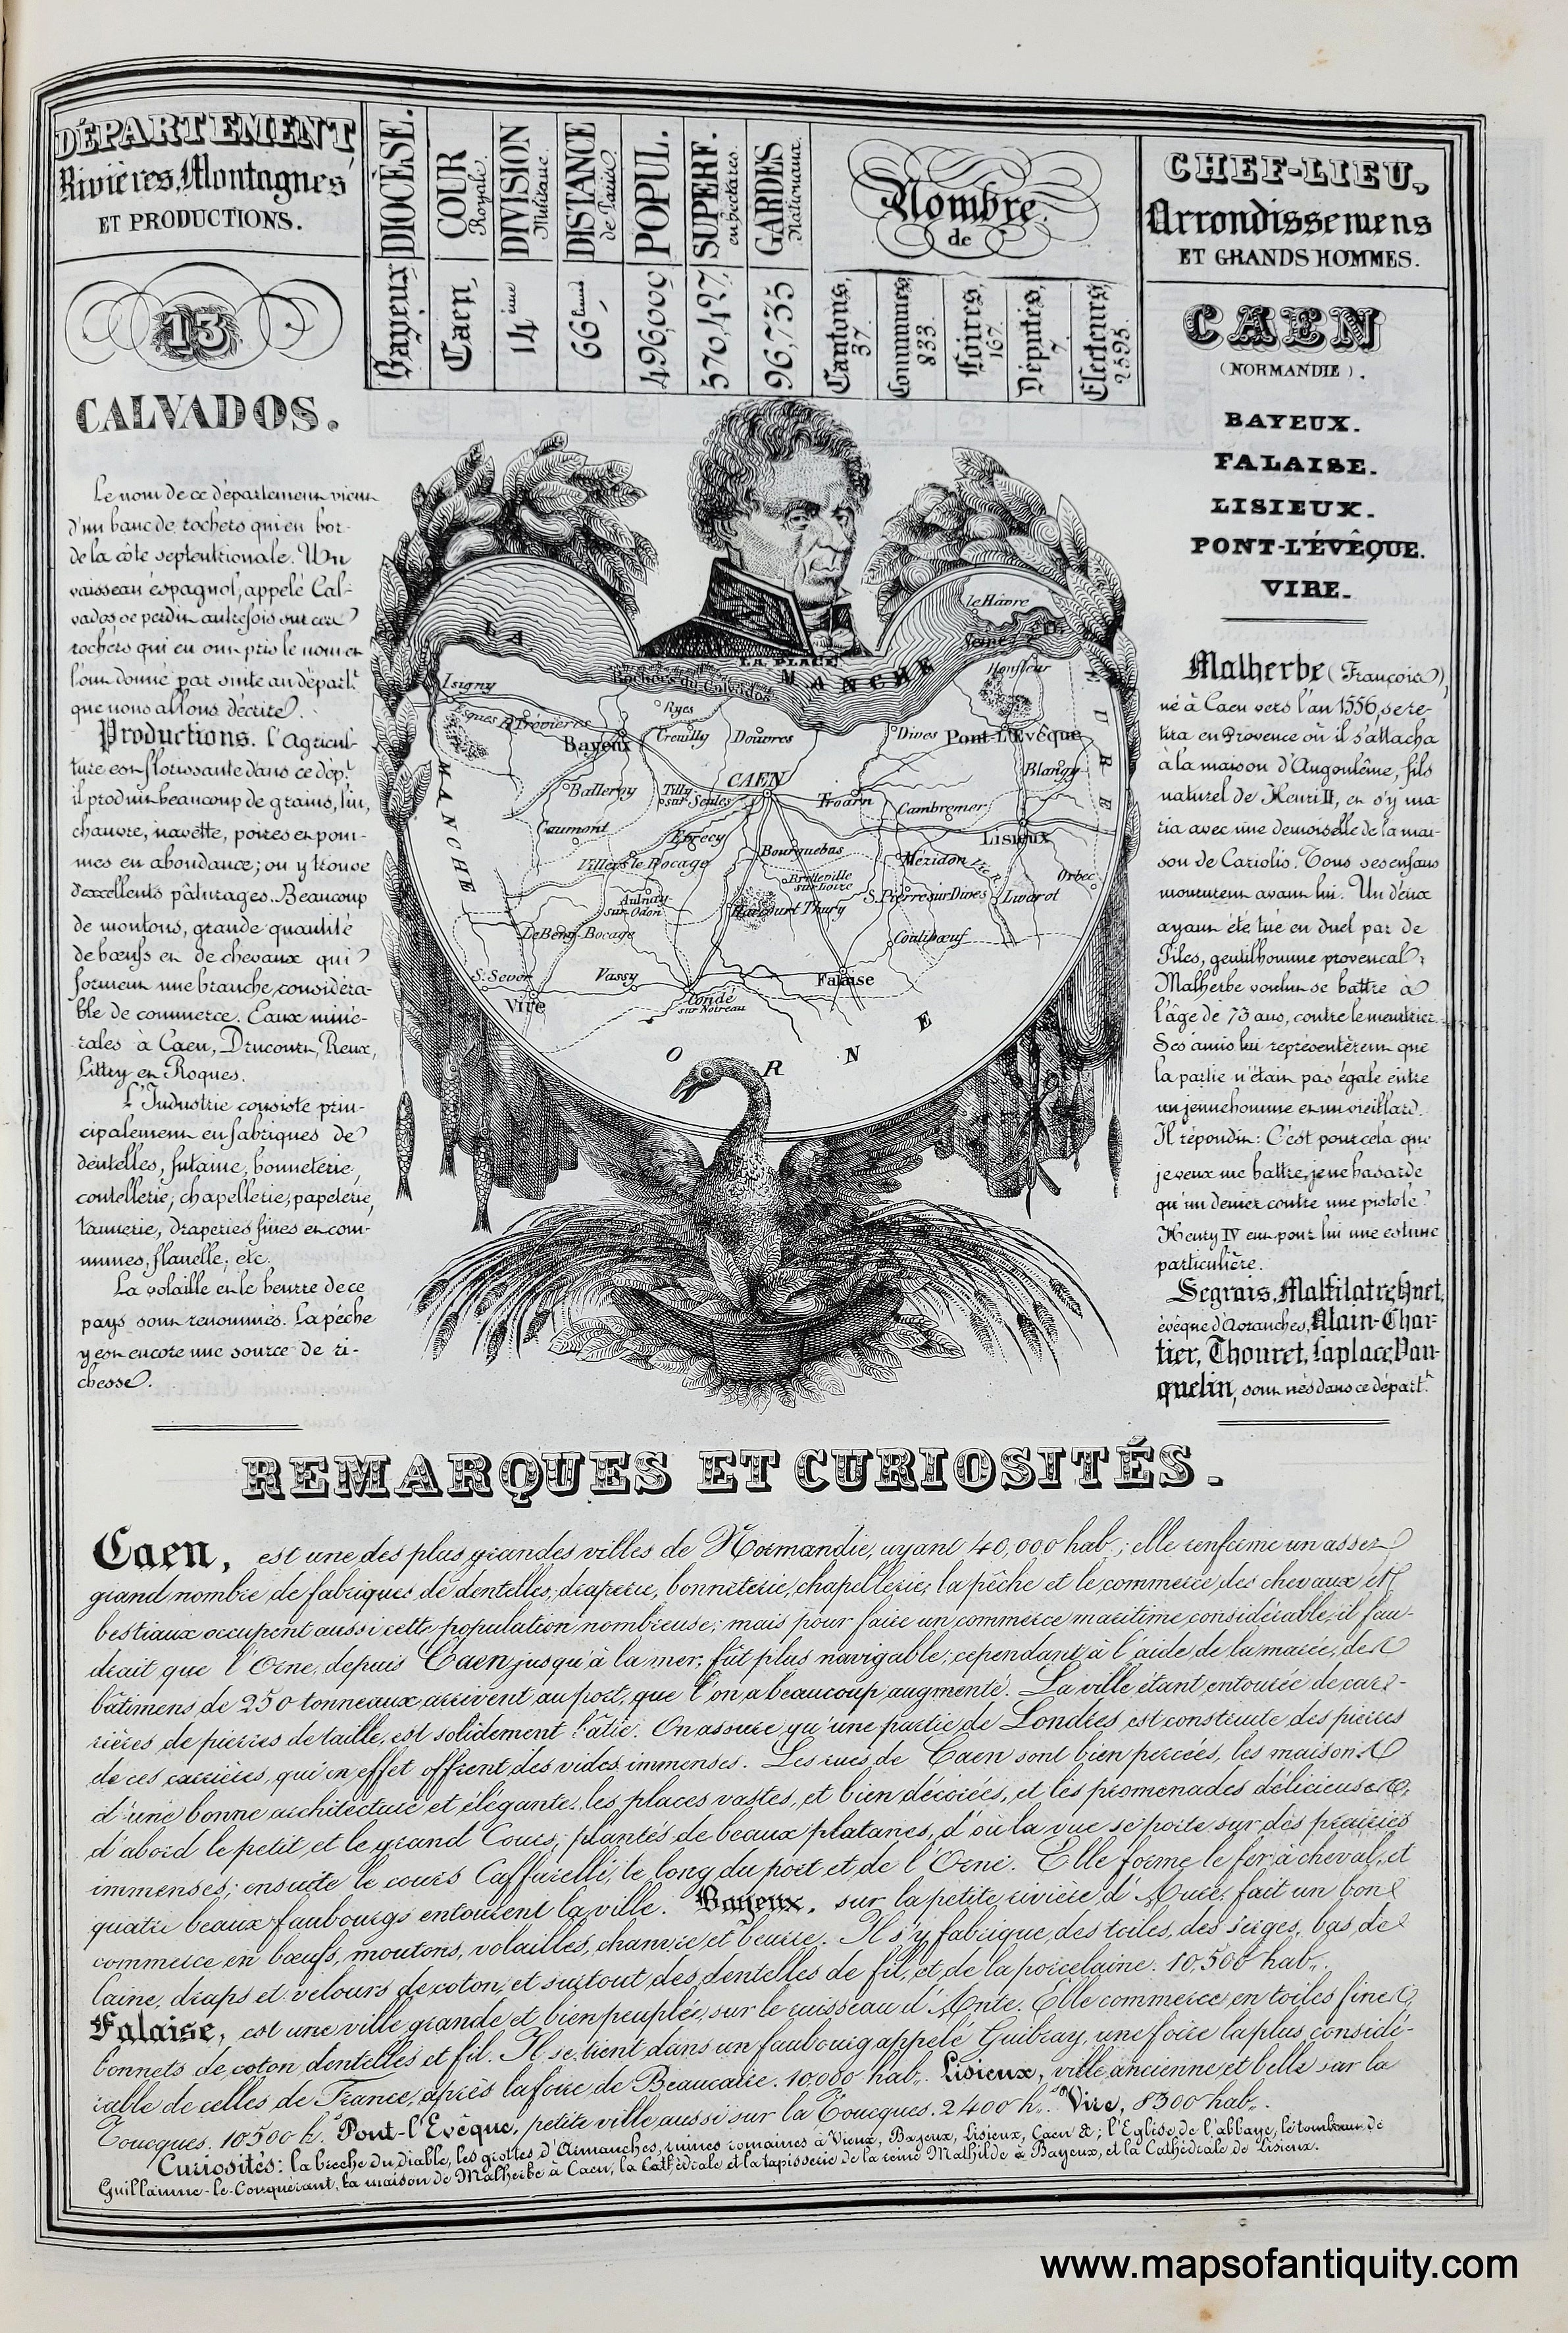 DÉPARTEMENT
Rivières, Montagnes
ET PRODUCTIONS.
DIOCÈSE.
Bayeux
COUR
Royale.
Caen,
DIVISION
Militaire.
14ème
DISTANCE
de Paris
66
POPUL.
496,009
SUPERF.
en hectares.
570,427,
GARDES
Nationaux.
96,735
Nombre
de
Cantons,
37.
Communes,
833.
Foires,
167.
Députés,
7.
Electeurs,
2595.
CHEF-LIEU,
Arrondissemens
ET GRANDS HOMMES.
13
CALVADOS.
Le nom de ce département vient
d'un banc de rochers qui en bor-
de la côte septentrionale. Un
vaisseau espagnol, appelé Cal-
vados, se perdit autrefois sur ces
rochers qui en ont pris le nom et
l'ont donné par suite au départt.
que nous allons décrire.
Productions. L'Agricul-
ture est florissante dans ce dépt.
il produit beaucoup de grains, lin,
chanvre, navette, poires et pom-
mes en abondance; on y trouve
d'excellents pâturages. Beaucoup
de moutons, grande quantité
de bœufs et de chevaux qui
forment une branche considéra-
ble de commerce. Eaux miné-
rales à Caen, Drucourt, Reux,
Littry et Roques.
L'Industrie consiste prin-
cipalement en fabriques de
dentelles, futaine, bonneterie,
coutellerie, chapellerie, papeterie,
tannerie, draperies fines et com-
munes, flanelle, etc.
La volaille et le beurre de ce
pays sont renommés. La pêche
y est encore une source de ri-
chesse.
LA PLACE
LA MANCHE
le Hâvre
Seine
Honfleur
Rochers du Calvados
Isigny
Trevières
Ryes
Bayeux
Creuilly
Douvres
Dives
Pont-L'Evêque
Blangy
CAEN
Balleroy
Tilly
sur Seules
Troarn
Cambremer
Caumont
Evrecy
Lisieux
Villers le Bocage
Bourguebus
Mézidon
Bretteville
sur Loize
Orbec
Aulnay
sur Odon
Harcourt Thury
S. Pierre sur Dives
Livarot
Le Beny-Bocage
Coulibœuf
S. Sever
Vassy
Falaise
Vire
Condé
sur Noireau
MANCHE
EURE
ORNE
CAEN
(NORMANDIE).
BAYEUX.
FALAISE.
LISIEUX.
PONT-L'ÉVÊQUE.
VIRE.
Malherbe (François),
né à Caen vers l'an 1556, se re-
tira en Provence où il s'attacha
à la maison d'Angoulême, fils
naturel de Henri II, et s'y ma-
ria avec une demoiselle de la mai-
son de Cariolis. Tous ses enfans
moururent avant lui. Un d'eux
ayant été tué en duel par de
Piles, gentilhomme provencal;
Malherbe voulut se battre à
l'âge de 73 ans, contre le meurtrier.
Ses amis lui représentèrent que
la partie n'était pas égale entre
un jeune homme et un vieillard.
Il répondit: C'est pour cela que
je veux me battre, je ne hasarde
qu'un denier contre une pistole.
Henry IV eut pour lui une estime
particulière.
Segrais, Malfilatre, Huet,
évêque d'Avranches, Alain-Char-
tier, Thouret, Laplace, Vau-
quelin, sont nés dans ce départt.
REMARQUES ET CURIOSITÉS.
Caen, est une des plus grandes villes de Normandie, ayant 40,000 hab.; elle renferme un assez
grand nombre de fabriques de dentelles, draperie, bonneterie, chapellerie; la pêche et le commerce des chevaux et
bestiaux occupent aussi cette population nombreuse; mais pour faire un commerce maritime considérable, il fau-
drait que l'Orne, depuis Caen jusqu'à la mer, fût plus navigable; cependant à l'aide de la marée, des
bâtimens de 250 tonneaux arrivent au port, que l'on a beaucoup augmenté. La ville étant entourée de car-
rières de pierres de taille, est solidement bâtie. On assure qu'une partie de Londres est construite des pierres
de ces carrières, qui en effet offrent des vides immenses. Les rues de Caen sont bien percées, les maisons
d'une bonne architecture et élégante, les places vastes, et bien décorées, et les promenades délicieuses,
d'abord le petit et le grand Cours, plantés de beaux platanes, d'où la vue se porte sur des prairies
immenses; ensuite le cours Caffarelli, le long du port et de l'Orne. Elle forme le fer à cheval, et
quatre beaux faubourgs entourent la ville. Bayeux, sur la petite rivière d'Aure, fait un bon
commerce en bœufs, moutons, volailles, chanvre et beurre. Il s'y fabrique des toiles, des serges, bas de
laine, draps et velours de coton, et surtout des dentelles de fil, et de la porcelaine. 10,500 hab..
Falaise, est une ville grande et bien peuplée, sur le ruisseau d'Ante. Elle commerce en toiles fines,
bonnets de coton dentelles et fil. Il se tient dans un faubourg appelé Guibray, une foire la plus considé-
rable de celles de France, après la foire de Beaucaire. 10,000 hab.. Lisieux, ville ancienne et belle sur la
Toucques. 10500 h.. Pont-l'Evêque, petite ville aussi sur la Toucques. 2400 h.. Vire, 8300 hab..
Curiosités: la brèche du diable, les grottes d'Aimanches, ruines romaines à Vieux, Bayeux, Lisieux, Caen &; l'Eglise de l'abbaye, le tombeau de
Guillaume-le-Conquérant, la maison de Malherbe à Caen, la Cathédrale et la tapisserie de la reine Mathilde à Bayeux, et la Cathédrale de Lisieux.
www.mapsofantiquity.com